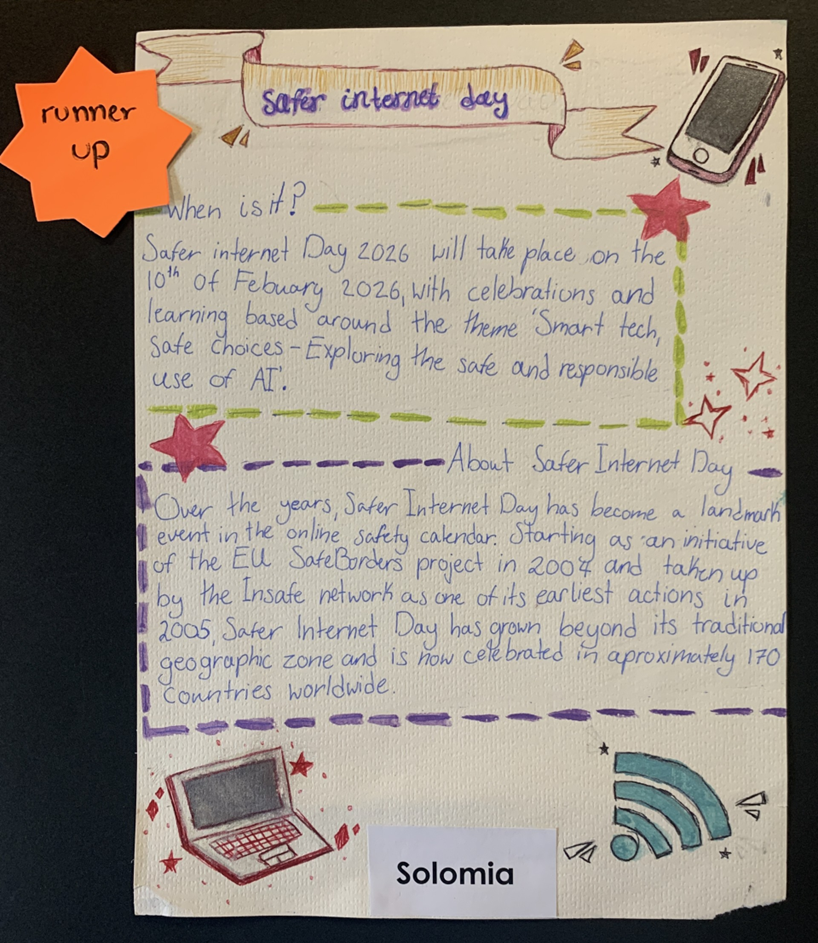 runner
up
Safer internet day
When is it?
Safer internet Day 2026 will take place on the
10th of Febuary 2026, with celebrations and
learning based around the theme 'Smart tech,
Safe choices - Exploring the safe and responsible
use of AI'.
About Safer Internet Day
Over the years, Safer Internet Day has become a landmark
event in the online safety calendar. Starting as an initiative
of the EU SafeBorders project in 2004 and taken up
by the Insafe network as one of its earliest actions in
2005, Safer Internet Day has grown beyond its traditional
geographic zone and is now celebrated in aproximately 170
countries worldwide.
Solomia